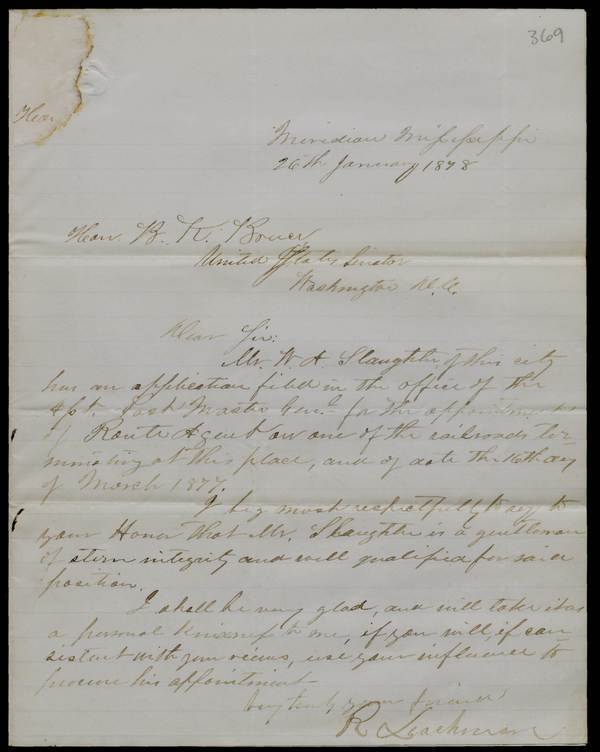 369
Hon
Meridian Mississippi
26th January 1878
Hon. B. K. Bruce
United States Senator
Washington D.C.
Dear Sir:
Mr. W. A. Slaughter of this city
has an application filed in the office of the
Post Master Genl for the appointment as
of Route Agent on one of the railroads ter-
minating at this place, and of date the 16th day
of March 1877.
I beg most respectfully to say to
your Honor that Mr. Slaughter is a gentleman
of stern integrity and well qualified for said
position.
I shall be very glad, and will take it as
a personal kindness to me, if you will, if con-
sistent with your views, use your influence to
procure his appointment
Very truly your friend
R Leachman